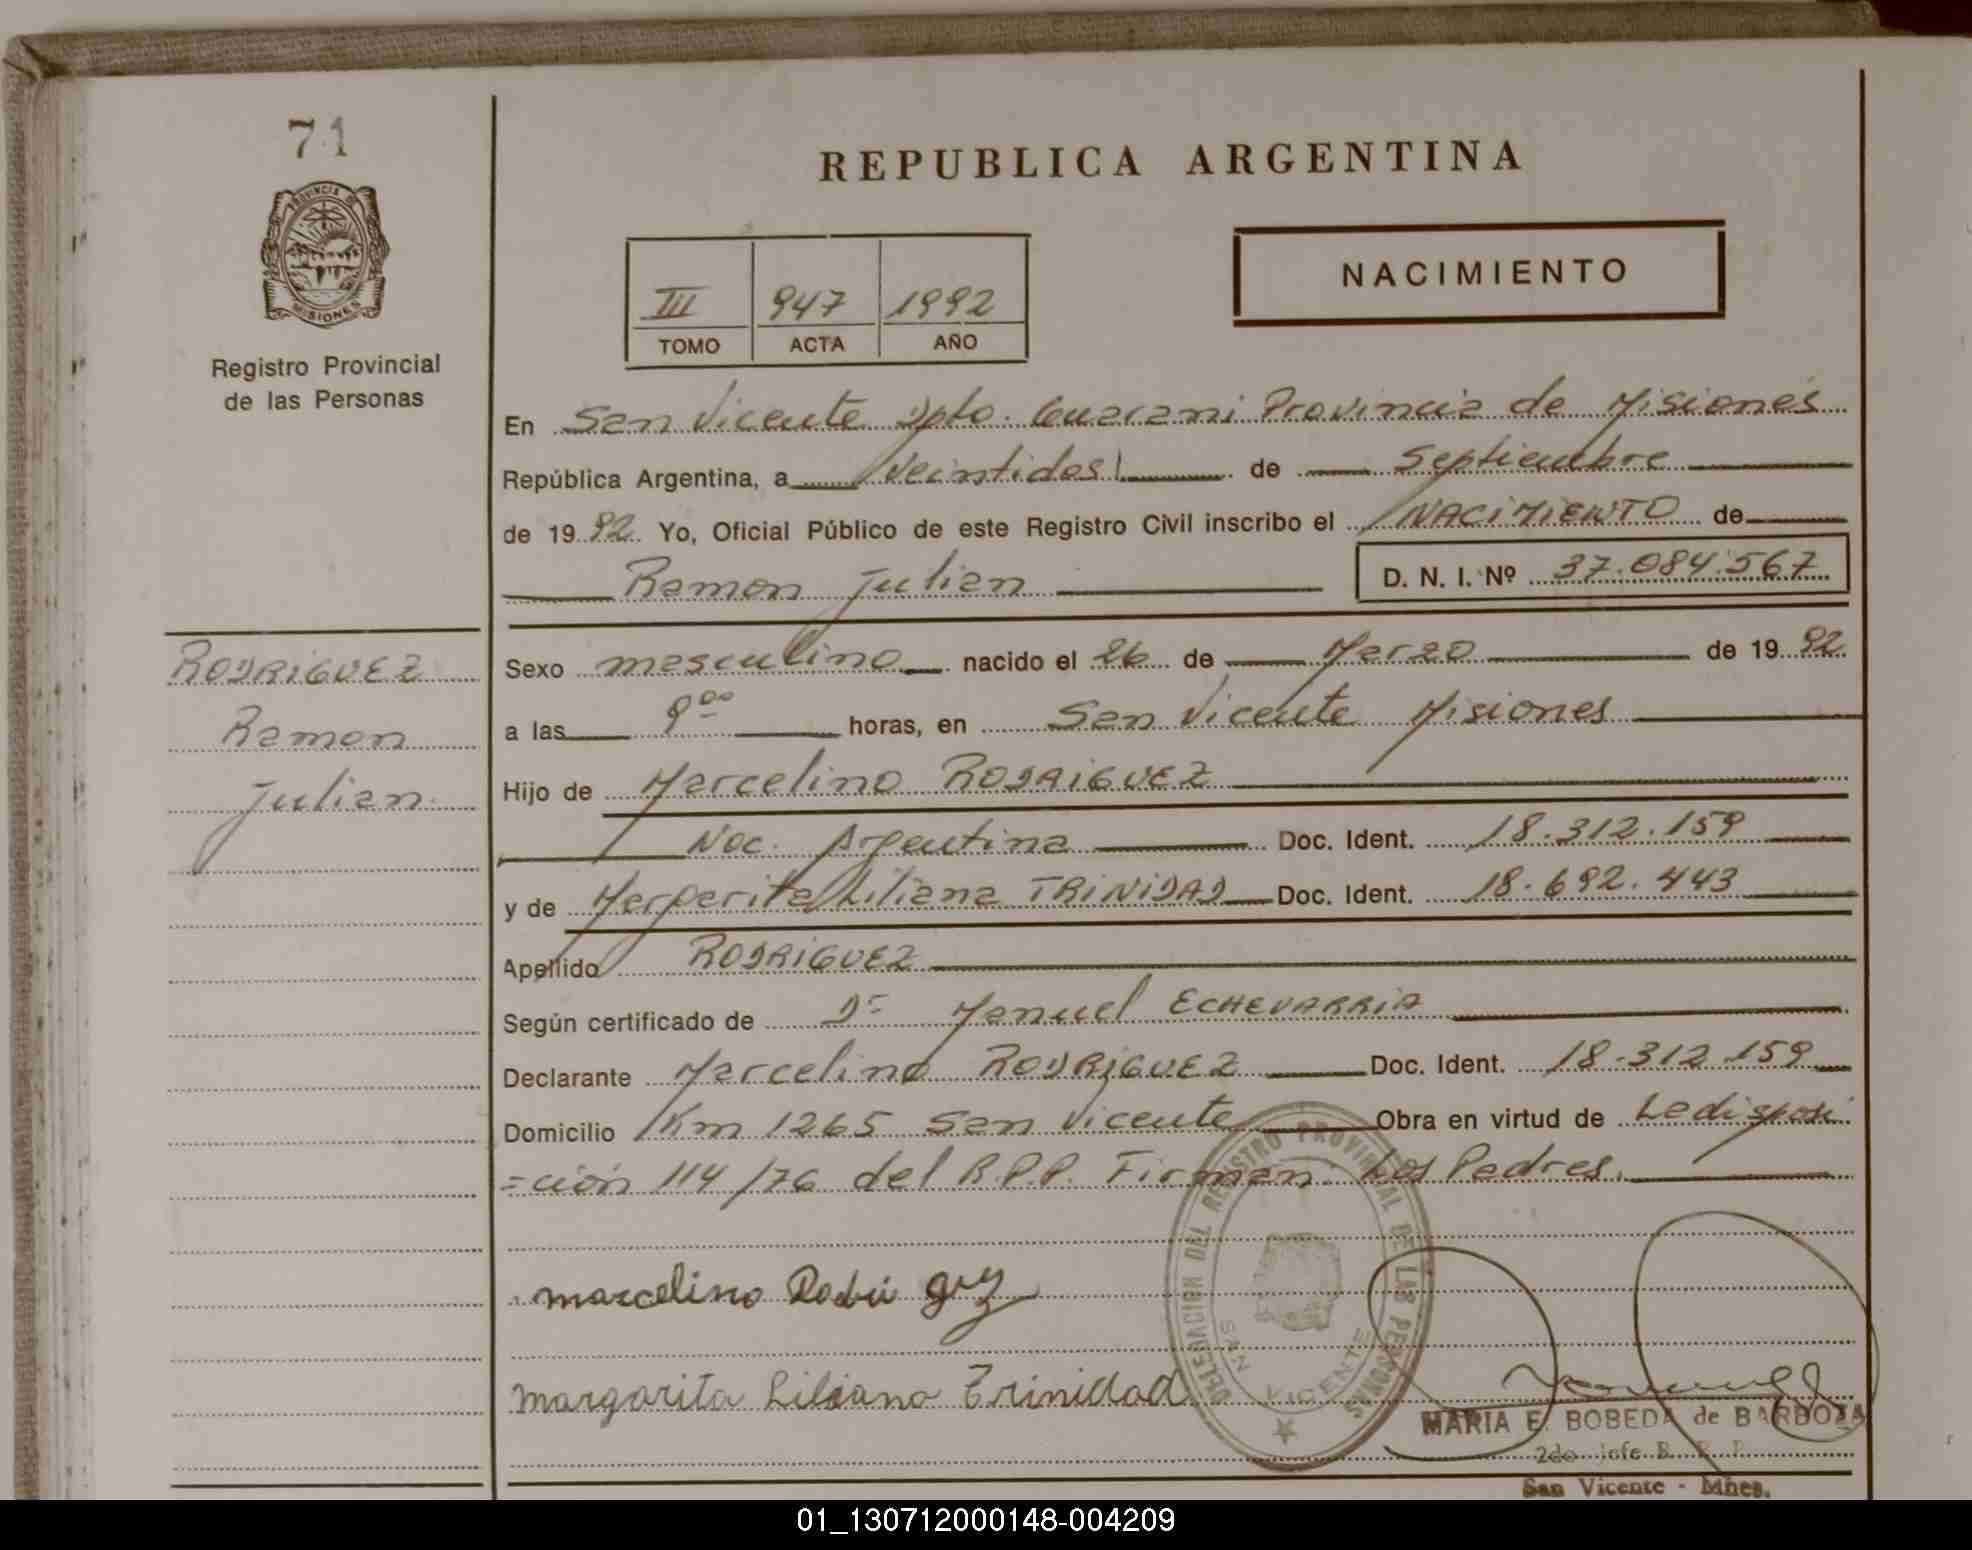 71
REPUBLICA ARGENTINA
PROVINCIA DE
MISIONES
Registro Provincial
de las Personas
III 947 1992
TOMO ACTA AÑO
NACIMIENTO
En San Vicente Dpto. Guarani Provincia de Misiones
República Argentina, a Veintidos de Septiembre
de 19 92 Yo, Oficial Público de este Registro Civil inscribo el NACIMIENTO de
Ramon Julian D. N. I. Nº 37.084.567
RODRIGUEZ
Ramon
Julian
Sexo masculino nacido el 26 de Marzo de 19 92
a las 9oo horas, en San Vicente Misiones
Hijo de Marcelino RODRIGUEZ
Nac. Argentina Doc. Ident. 18.312.159
y de Margarita Liliana TRINIDAD Doc. Ident. 18.692.443
Apellido RODRIGUEZ
Según certificado de Dr Manuel ECHEVARRIA
Declarante Marcelino RODRIGUEZ Doc. Ident. 18.312.159
Domicilio Km 1265 San Vicente Obra en virtud de La disposi
=ción 114/76 del R.P.P. Firman Los Padres.
DELEGACION DEL REGISTRO PROVINCIAL DE LAS PERSONAS
SAN VICENTE
marcelino
margarita Liliana Trinidad
MARIA E. BOBEDA de BARBOZA
2do Jefe R. P. P.
San Vicente - Mnes.
01_130712000148-004209